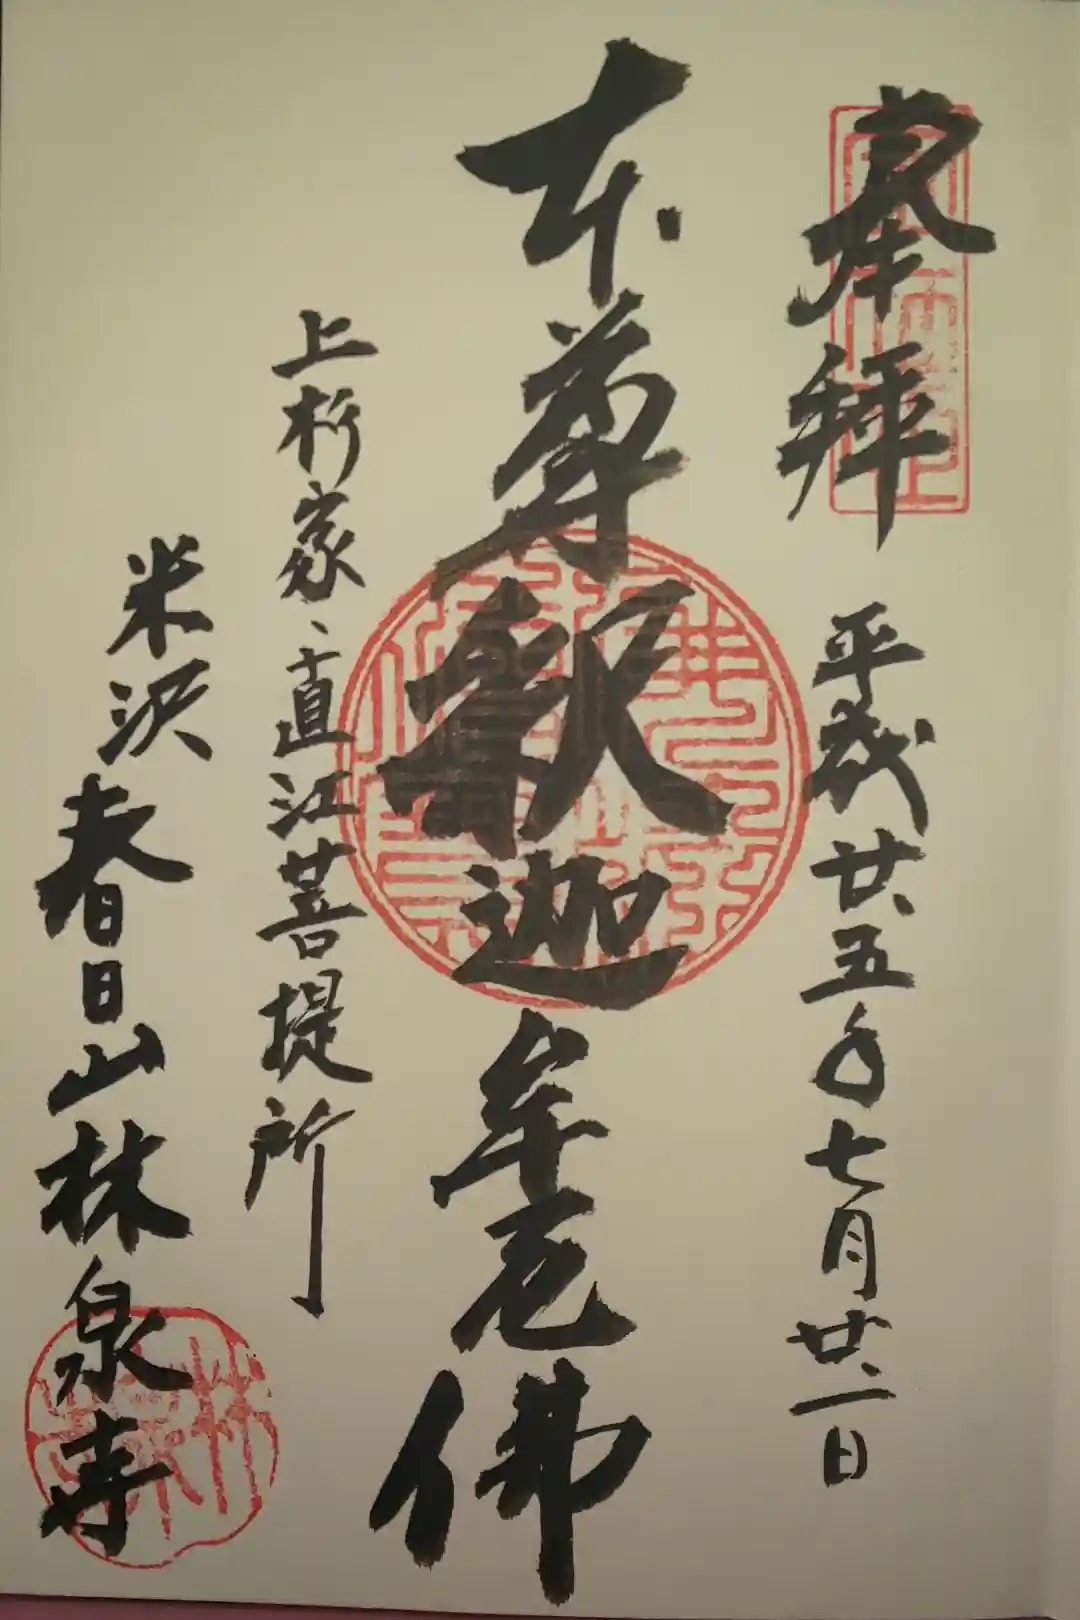 奉拝 平成廿五年七月廿一日
本尊釈迦牟尼佛
上杉家、直江菩提所
米沢春日山林泉寺